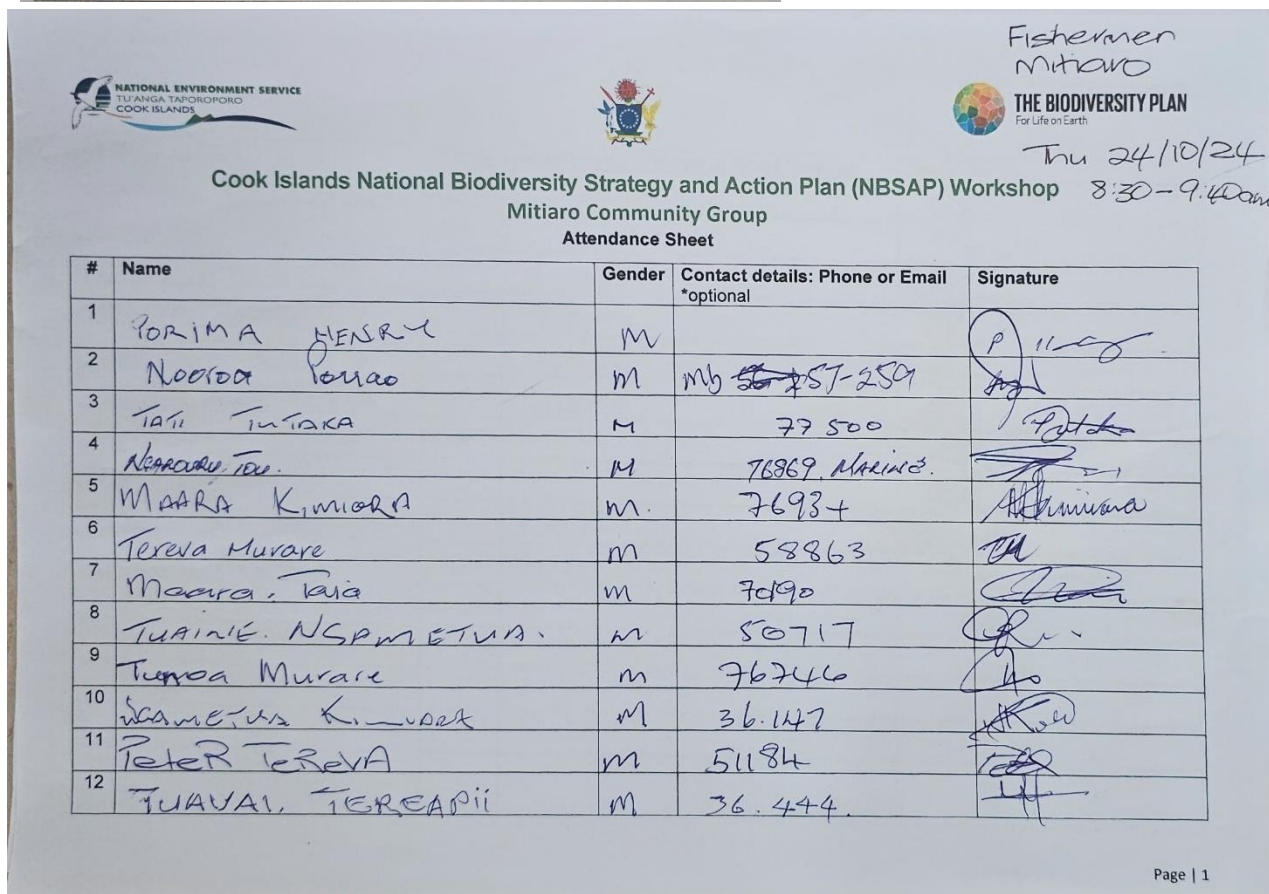 Fishermen
Mitiaro
NATIONAL ENVIRONMENT SERVICE
TU'ANGA TAPOROPORO
COOK ISLANDS
THE BIODIVERSITY PLAN
For Life on Earth
Thu 24/10/24
8:30 - 9:40am
Cook Islands National Biodiversity Strategy and Action Plan (NBSAP) Workshop
Mitiaro Community Group
Attendance Sheet
# Name Gender Contact details: Phone or Email *optional Signature
1 PORIMA HENRY M
2 Nooroa M Mb 57-259
3 TATI TUTAKA M 77 500
4 M 76869. MARINE.
5 MAARA KIMIORA M. 76934
6 Tereva Murare M 58863
7 Maara. Taia M
8 TUAINE. NGAMETUA. M 50717
9 Murare M
10 NGAMETUA M 36.147
11 PeteR TeRevA M 51184
12 TUAVAI. TEREAPii M 36.444.
Page | 1